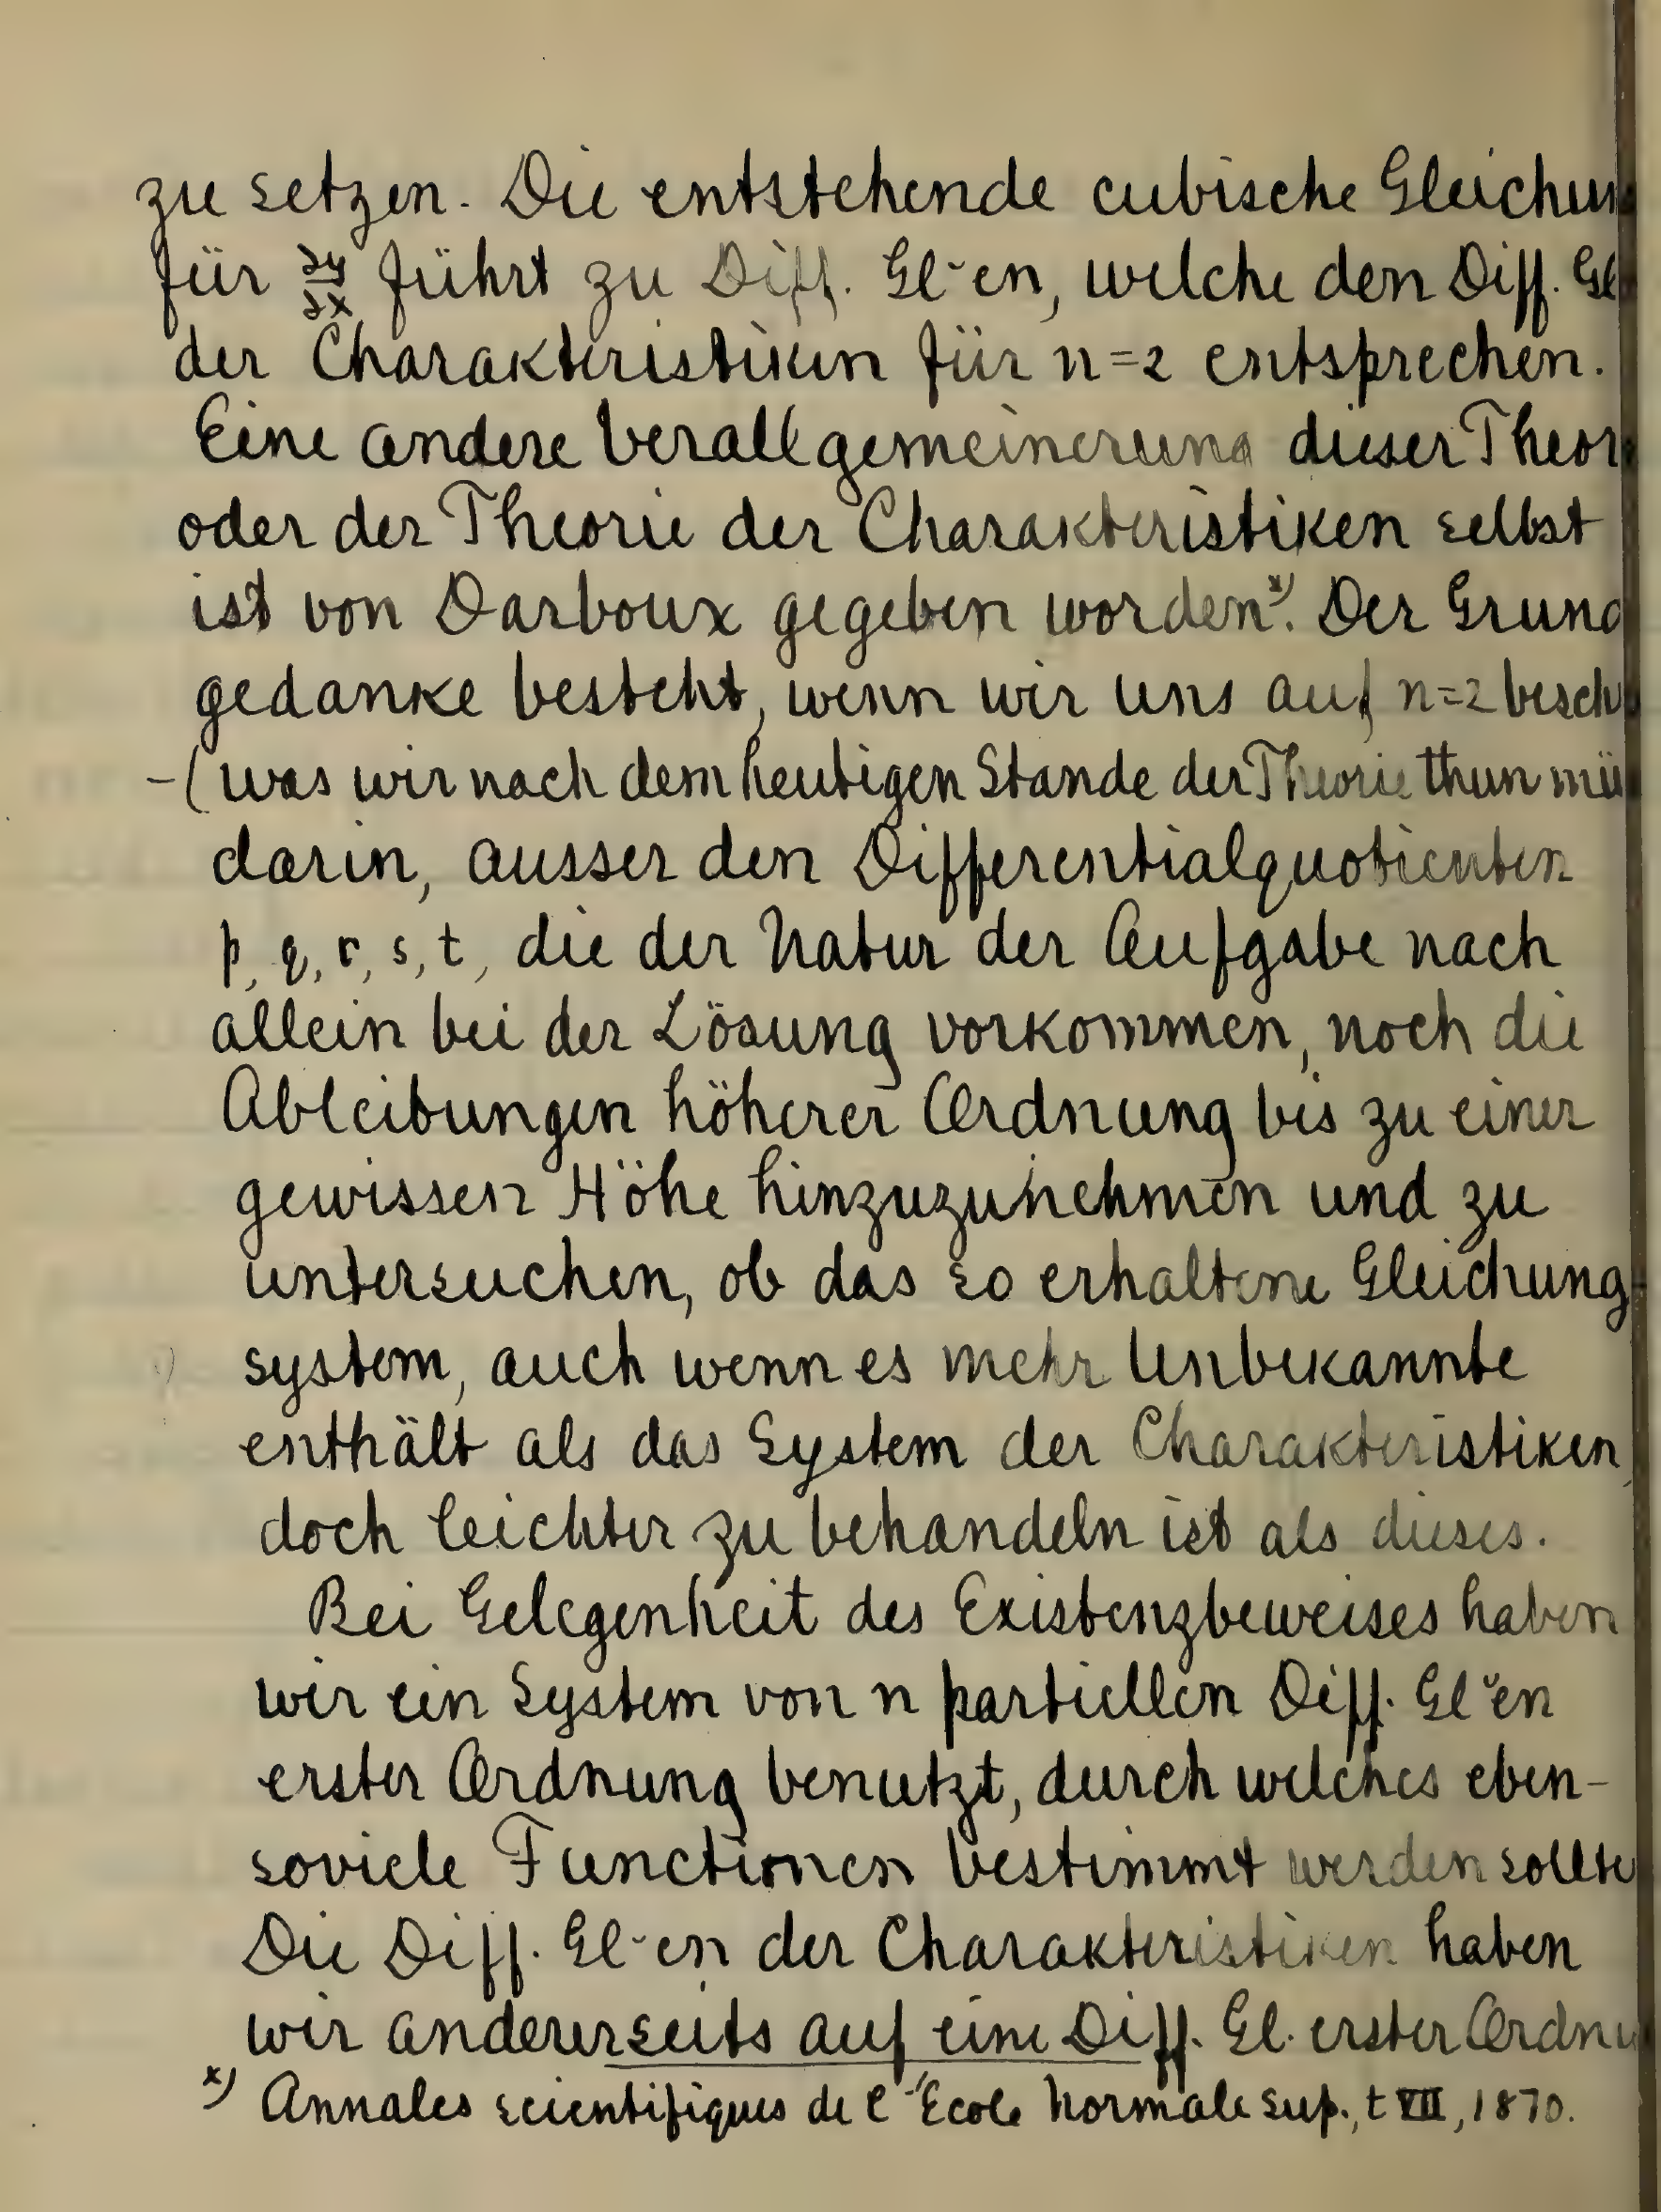 zu setzen. Die entstehende cubische Gleichun
für ∂y/∂x führt zu Diff. Gl-en, welche den Diff. Gl
der Charakteristiken für n=2 entsprechen.
Eine andere Verallgemeinerung dieser Theor
oder der Theorie der Charakteristiken selbst
ist von Darboux gegeben worden x). Der Grund
gedanke besteht, wenn wir uns auf n=2 besch
-(was wir nach dem heutigen Stande der Theorie thun mü
darin, ausser den Differentialquotienten
p, q, r, s, t, die der Natur der Aufgabe nach
allein bei der Lösung vorkommen, noch die
Ableitungen höherer Ordnung bis zu einer
gewissen Höhe hinzuzunehmen und zu
untersuchen, ob das so erhaltene Gleichung-
system, auch wenn es mehr Unbekannte
enthält als das System der Charakteristiken,
doch leichter zu behandeln ist als dieses.
Bei Gelegenheit des Existenzbeweises haben
wir ein System von n partiellen Diff. Gl-en
erster Ordnung benutzt, durch welches eben-
soviele Functionen bestimmt werden sollte
Die Diff. Gl-en der Charakteristiken haben
wir andererseits auf eine Diff. Gl. erster Ordnu
x) Annales scientifiques de l'École Normale sup., t VII, 1870.